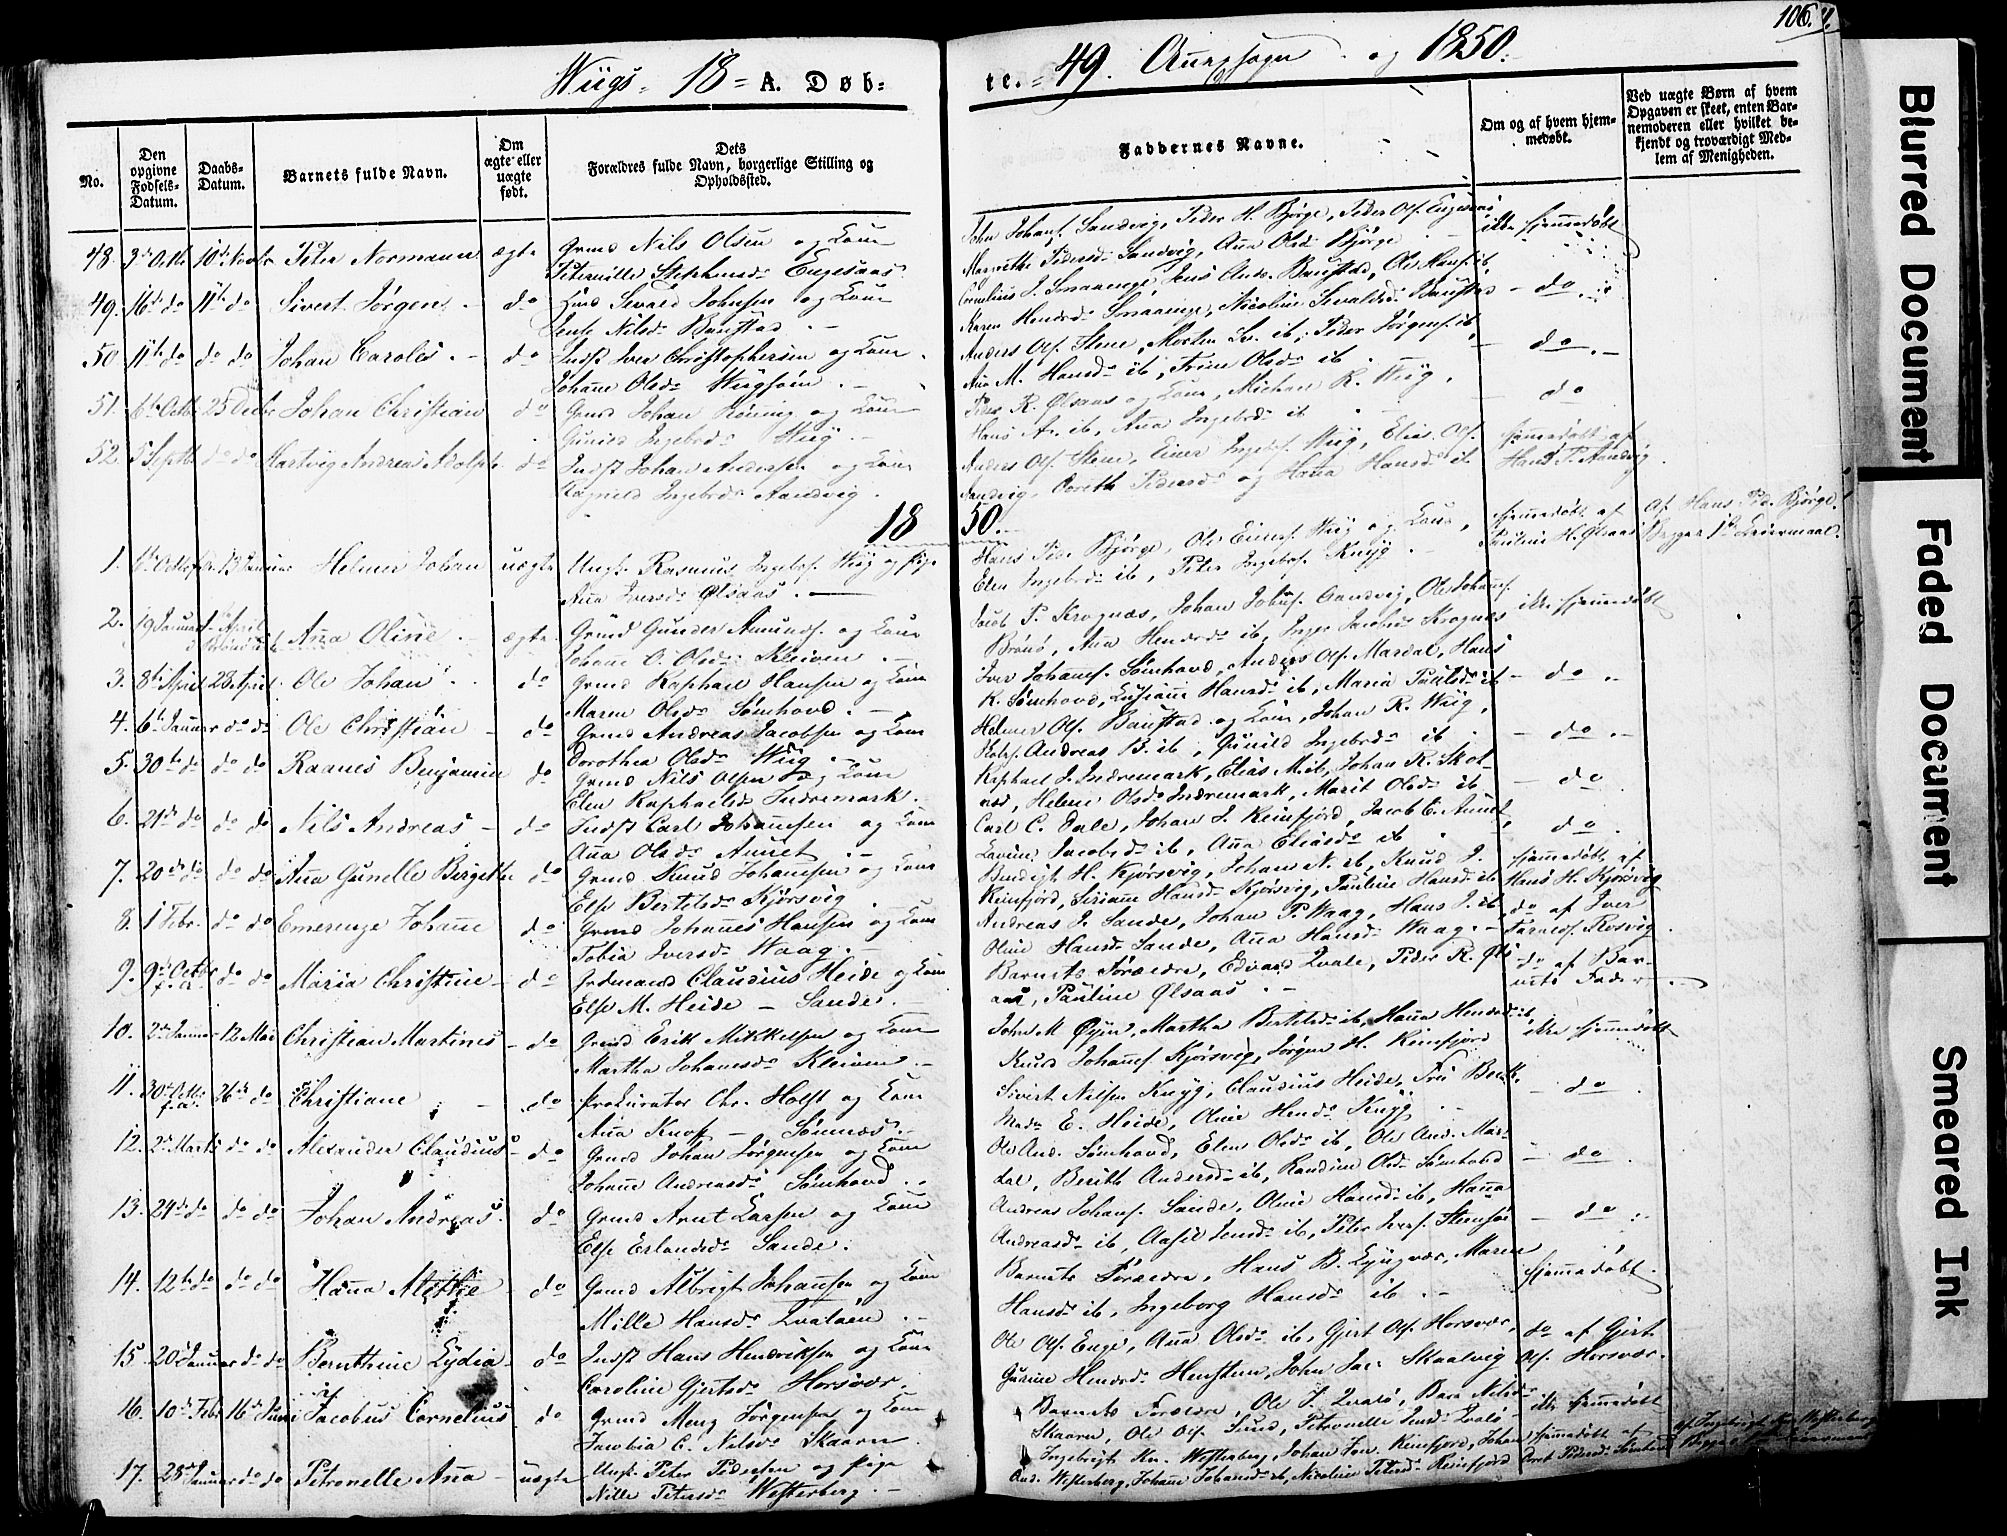 Wiigs- 18 = A. Døb=
te. = 49. Aunesogn og 1850.
106.
No.
Den opgivne Fødsels-Datum.
Daabs-Datum.
Barnets fulde Navn.
Om ægte eller uægte født.
Dets Forældres fulde Navn, borgerlige Stilling og Opholdssted.
Faddernes Navne.
Om og af hvem hjem-medøbt.
Ved uægte Børn af hvem Opgaven er skeet, enten Bar-nemoderen eller hvilket be-kjendt og troværdigt Med-lem af Menigheden.
48. 3de Octbr 10de Novbr Peter Normann ægte Grmd Nils Olsen og Kone
Peternille Engesaas
John Johans. Sandvig, Peder H. Bjørge, Peder Ols. Engesaas
Marrethe Pedersd. Sandvig, Ana Olsd. Bjørge
ikke hjemmedøbt
49. 16de do 11te do Sivert Jørgen do Sevald Johnsen og Kone
Nilsd. Baustad
Cornelius J. Smaaenge, Jens And. Baustad, Ole Hans. ib,
Karen Hendrd. Smaaenge, Nicoline Sevaldsd. Baustad
do
50 11te do do do Johan Carolus do Indst Iver Christophersen og Kone
Johanne Olsd. Wiigsøin
Anders Ols. Stene, Morten ib, Peder Jørgens. ib,
Ana M. Hansd. ib, Trine Olsd. ib
do
51. 6te Octbr 25 Decbr Johan Christian do Grmd Johan Rønnig og Kone
Gunild Ingebrd. Wiig
Peder R. Ølsaas og Kone, Michael R. Wiig,
Hans A. ib, Ana Ingebrd. ib
do
52. 5 Septbr do do Hartvig Andreas Adolph do Indst Johan Andersen og Kone
Ragnild Ingebrd. Aandvig
Anders Ols. Stene, Einer Ingebrs. Wiig, Elias Ols.
Aandvig, Dorethe Pedersd. og Hana Hansd. ib
hjemmedøbt af
Hans P. Aandvig
18 50
1. Octbr 13 Januar Helmer Johan uægte Ungk. Rasmus Ingebrs. Wiig og Pige
Ana Iversd. Ølsaas
Hans Peds. Bjørge, Ole Einers. Wiig og Kone,
Elen Ingebrd. ib, Peter Ingebrs. Knyg
hjemmedøbt af
Pauline H. Ølsaas
Af Hans Ped. Bjørge.
Begges 1ste Leiermaal.
2. 19 Januar 1 April Ana Oline ægte Grmd Gunder Amunds. og Kone
Johane O. Olsd. Kleiven
Jacob P. Krognæs, Johan Johns. Aandvig, Ole Johans.
Brønø, Ana Hendrd. ib, Inger Jacobsd. Krognæs
ikke hjemmedøbt
3. 8de April 28 April Ole Johan do Grmd Raphael Hansen og Kone
Maren Olsd. Sømhovd
Iver Johans. Sømhovd, Anders Ols. Mardal, Hans
R. Sømhovd, Lusiane Hansd. ib, Maria Paulsd. ib
do
4. 6te Januar do do Ole Christian do Grmd Andreas Jacobsen og Kone
Dorothea Olsd. Wiig
Helmer Ols. Baustad og Kone, Johan R. Wiig,
Andreas B. ib, Gunild Ingebrd. ib
do
5. 30te do do do Raanes Benjamin do Grmd Nils Olsen og Kone
Elen Raphaelsd. Indremark
Raphael J. Indremark, Elias M. ib, Johan R. Skot-
nes, Helene Olsd. Indremark, Marit Olsd. ib
do
6. 21de do do do Nils Andreas do Indst Carl Johannesen og Kone
Ana Olsd. Aunet
Carl C. Dale, Johan J. Reinsfjord, Jacob E. Aunet,
Lavine Jacobsd. ib, Ana Eliasd. ib
do
7. 20de do do do Ana Gunelle Birgithe do Grmd Knud Johannesen og Kone
Else Bertelsd. Kjørsvig
Bendigt H. Kjørsvig, Johan N. ib, Knud J.
Reinsfjord, Siriane Hansd. Kjørsvig, Pauline Hansd. ib
hjemmedøbt af
Hans H. Kjørsvig
8. 1 Febr. do do Emerenze Johane do Grmd Johannes Hansen og Kone
Tobia Iversd. Waag
Andreas J. Sande, Johan P. Waag, Hans J. ib,
Oline Hansd. Sande, Ana Hansd. Waag
do af Iver
Rosvig
9. 9de Octbr f. A. do do Maria Christine do Grdmand Claudius Heide og Kone
Else M. Heide - Sande
Barnets Forældre, Edvard Qvale, Peder R. Øls-
aas, Pauline Ølsaas
do af Bar-
nets Fader
10. 2de Januar 12 Mai Christian Martines do Grmd Erik Mikkelsen og Kone
Martha Johansd. Kleiven
John M. Øyen, Martha Bertelsd. ib, Hana Hendrd. ib,
Knud Johans. Kjørsvig, Jørgen H. Reinsfjord
ikke hjemmedøbt
11. 30te Octbr f. A. 26de do Christiane do Prokurator Chr. Holst og Kone
Ana Knoph - Sømnæs
Sivert Nilsen Knyg, Claudius Heide, Fru Beck,
Mad. E. Heide, Oline Hendrd. Knyg
do
12. 2de Marts do do Alexander Claudius do Grmd Johan Jørgensen og Kone
Johane Andreasd. Sømhovd
Ole And. Sømhovd, Elen Olsd. ib, Ole And. Mar-
dal, Berith Andersd. ib, Randine Olsd. Sømhovd
do
13. 24de do do do Johan Andreas do Grmd Arnt Larsen og Kone
Else Erlandsd. Sande
Andreas Johans. Sande, Oline Hansd. ib, Hana
Andreasd. ib, Aasel Jensd. ib, Peter Ivers. Steensøe
do
14. 12te do do do Hana Mettie do Grmd Albrigt Johansen og Kone
Mille Hansd. Qvaløen
Barnets Forældre, Hans B. Lyngvær, Maren
Hansd. ib, Ingeborg Hansd. ib
hjemmedøbt
15 20 Januar do do Bernthine Lydia do Indst Hans Hendriksen og Kone
Caroline Gjertsd. Horsvær
Ole Ols. Enge, Ana Olsd. ib, Gjert Ols. Horsvær,
Gurine Hendrd. Henstein, John Jac. Skaalvig
do af Gjert
Ols. Horsvær
16. 10de Febr 16de Juni Jacobus Cornelius do Grmd Meng Jørgensen og Kone
Jacobia C. Nilsd. Skaaren
Barnets Forældre, Ole J. Qvalø, Nilsd.
Skaaren, Ole Ols. Sund, Petronelle Jensd. Qvalø
ikke hjemmedøbt
17. 28 Januar do do Petronelle Ana uægte Ungk. Peter Pedersen og Pige
Nille Petersd. Westerberg
Ingebrigt Kn. Westerberg, Johan Jon. Reinsfjord, Johan
And. Westerberg, Johane Johansd. ib, Nicoline Petersd. Reinsfjord
hjemmedøbt af
Pedersd. Sømhovd
af Ingebrigt Kn. Westerberg
Blurred Document
Faded Document
Smeared Ink